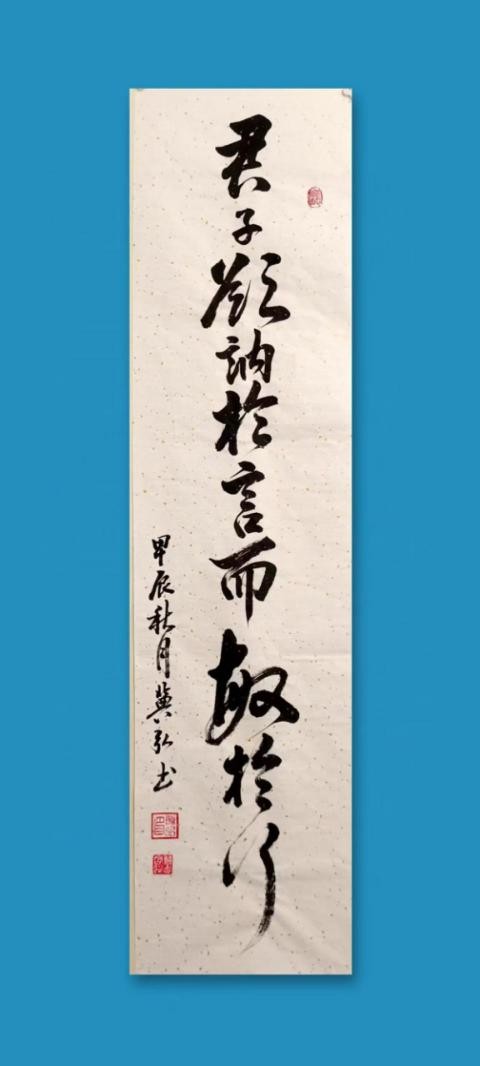 君子欲訥於言而敏於行
甲辰秋月弘书